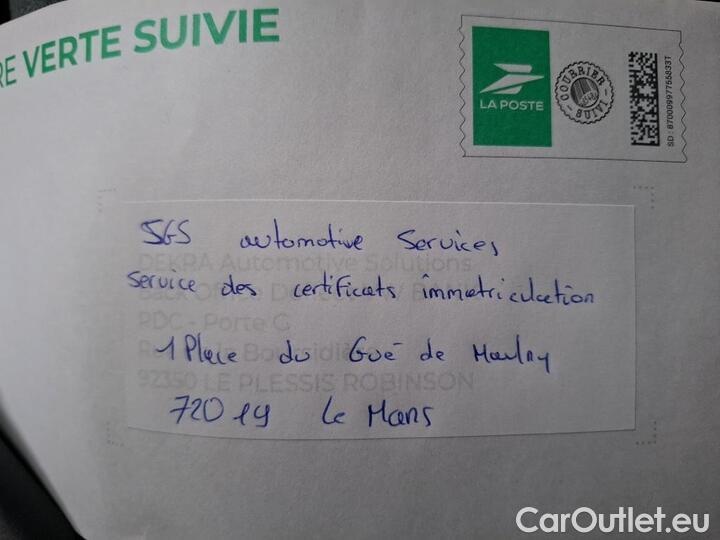 RE VERTE SUIVIE
LA POSTE
COURRIER
SUIVI
SD : 87000997755833T
SGS automotive Services
DEKRA Automotive Solutions
service des certificats immatriculation
PDC - Porte G
1 Place du Gué de Maulny
92350 LE PLESSIS ROBINSON
72019 Le Mans
CarOutlet.eu